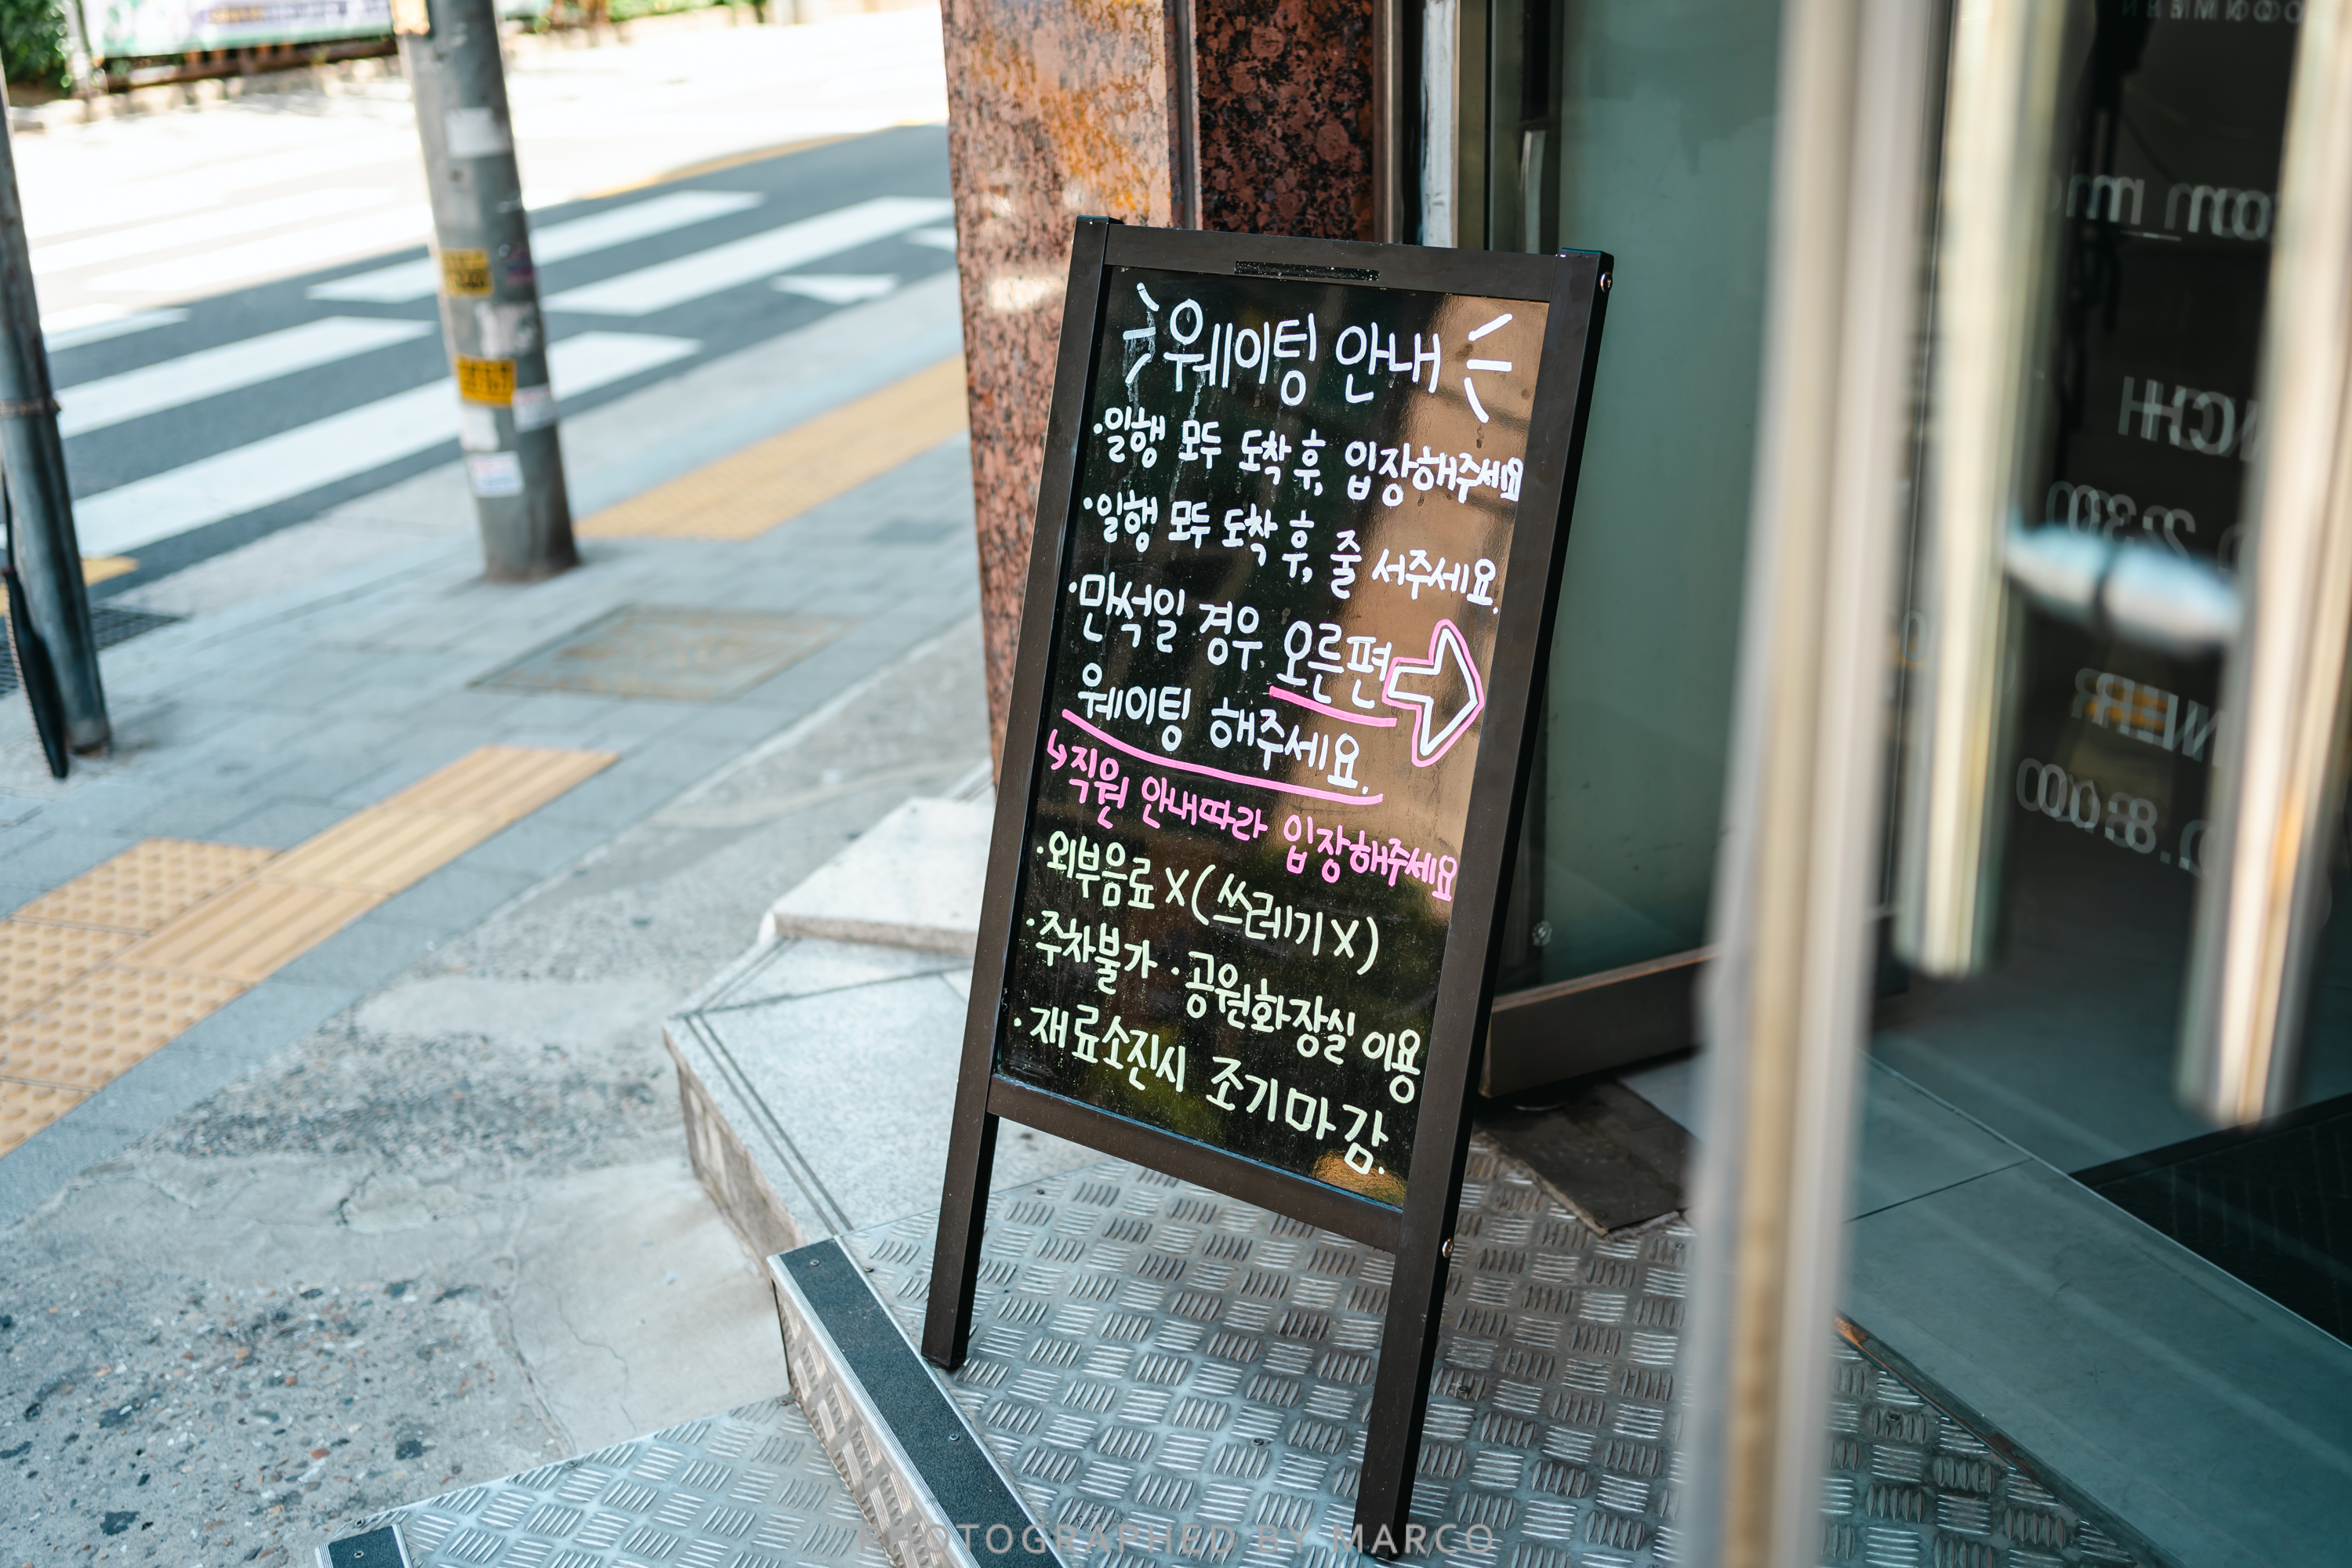 웨이팅 안내
·일행 모두 도착 후, 입장해주세요
·일행 모두 도착 후, 줄 서주세요.
·만석일 경우 오른편
웨이팅 해주세요.
↳직원 안내따라 입장해주세요
·외부음료 X (쓰레기 X)
·주차불가 ·공원화장실 이용
·재료소진시 조기마감.
PHOTOGRAPHED BY MARCO